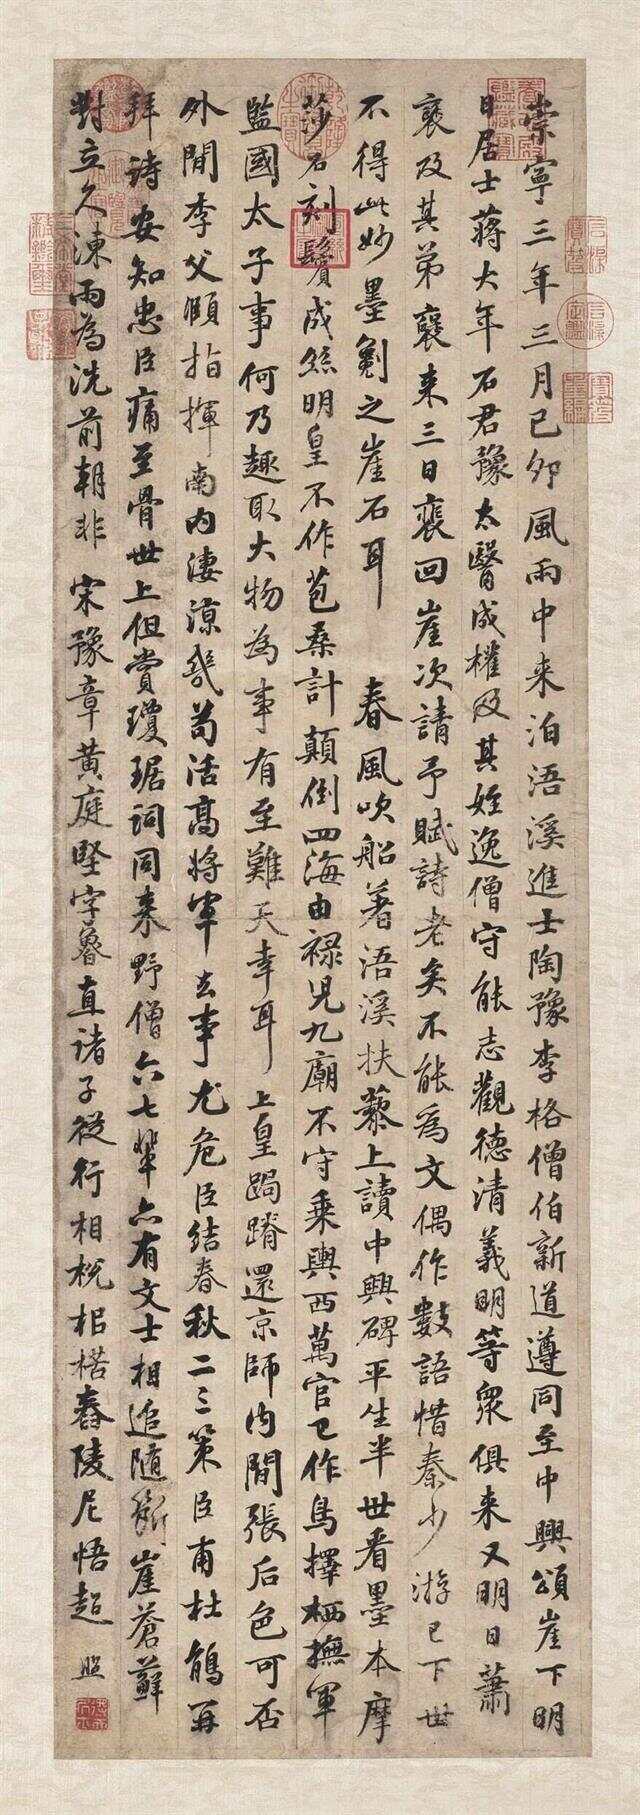 崇寧三年三月己卯風雨中来泊浯溪進士陶豫李格僧伯新道遵同至中興頌崖下明
日居士蔣大年石君豫太醫成權及其姪逸僧守能志觀德清義明等衆俱来又明日蕭
裦及其弟襃来三日裴回崖次請予賦詩老矣不能為文偶作數語惜秦少游已下世
不得此妙墨劖之崖石耳 春風吹船著浯溪扶藜上讀中興碑平生半世看墨本摩
莎石刻鬢成絲明皇不作苞桑計顛倒四海由禄兒九廟不守乗輿西萬官已作鳥擇栖撫軍
監國太子事何乃趣取大物為事有至難天幸耳上皇跼蹐還京師内間張后色可否
外間李父頤指揮南内凄涼幾苟活高將軍去事尤危臣結舂秋二三策臣甫杜鵑再
拜詩安知忠臣痛至骨世上但賞瓊琚詞同来野僧六七輩亦有文士相追随斷崖蒼蘚
對立久涷雨為洗前朝悲 宋豫章黄庭堅字魯直諸子從行相梲相楛舂陵尼悟超
照